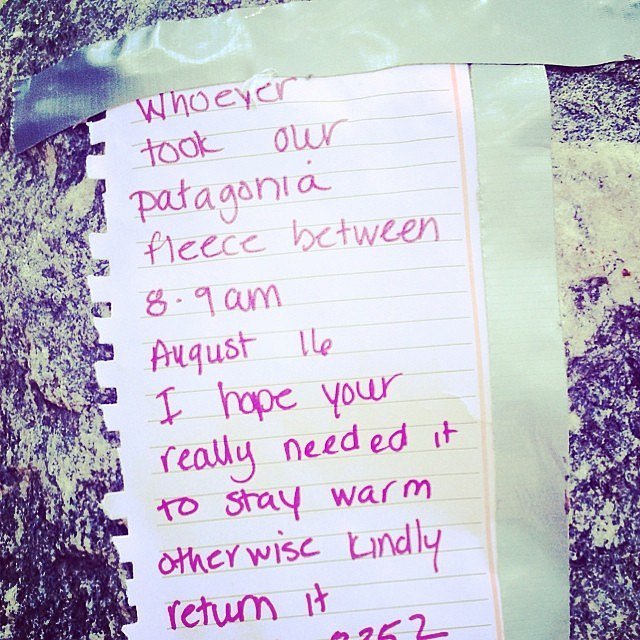 Whoever
took our
patagonia
fleece between
8-9am
August 16
I hope your
really needed it
to stay warm
otherwise kindly
return it
8352